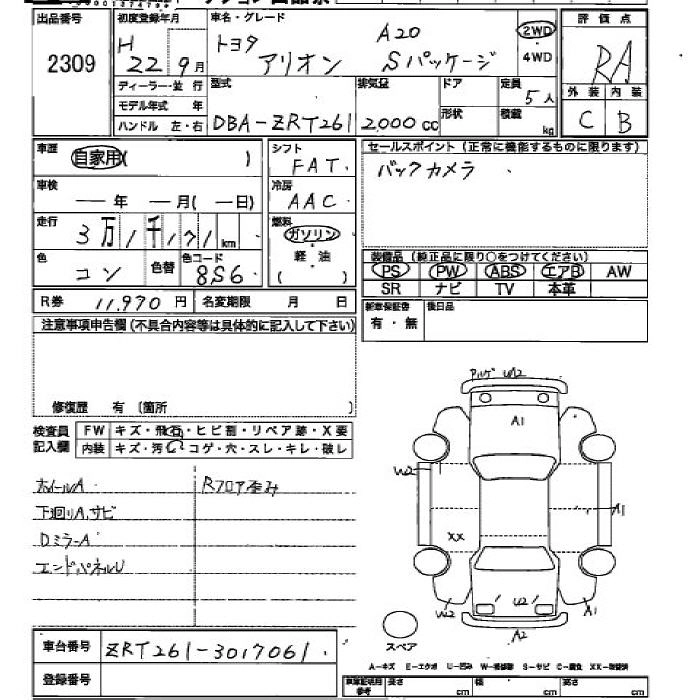 出品番号
2309
初度登録年月
H 22 9月
車名・グレード
トヨタ アリオン A20 Sパッケージ
2WD
4WD
評価点
RA
外装 内装
C B
ディーラー・並 行
モデル年式 年
ハンドル 左・右
型式
DBA-ZRT261
排気量
2000 cc
ドア
形状
定員
5人
積載
kg
車歴
自家用( )
車検
— 年 — 月( — 日)
走行
3万1千171 km
色
コン
色替
色コード
8S6
シフト
FAT
冷房
AAC
燃料
ガソリン
軽・油
( )
セールスポイント(正常に機能するものに限ります)
バックカメラ
装備品(純正品に限り○をつけてください)
PS PW ABS エアB AW
SR ナビ TV 本革
R券 11,970 円 名変期限 月 日
新車保証書
有・無
後日品
注意事項申告欄(不具合内容等は具体的に記入して下さい)
修復歴 有(箇所 )
検査員
記入欄
FW キズ・飛石・ヒビ割・リペア跡・X要
内装 キズ・汚・コゲ・穴・スレ・キレ・破レ
ホイールA
Rフロア歪み
下廻りA,サビ
DミラーA
エンドパネルU
W2
A1
W2
A1
XX
W2
U2
A1
A2
スペア
A-キズ E-エクボ U-凹み W-補修跡 S-サビ C-腐食 XX-交換済
車台番号
ZRT261-3017061
登録番号
車庫証明用
参考
長さ cm 幅 cm 高さ cm